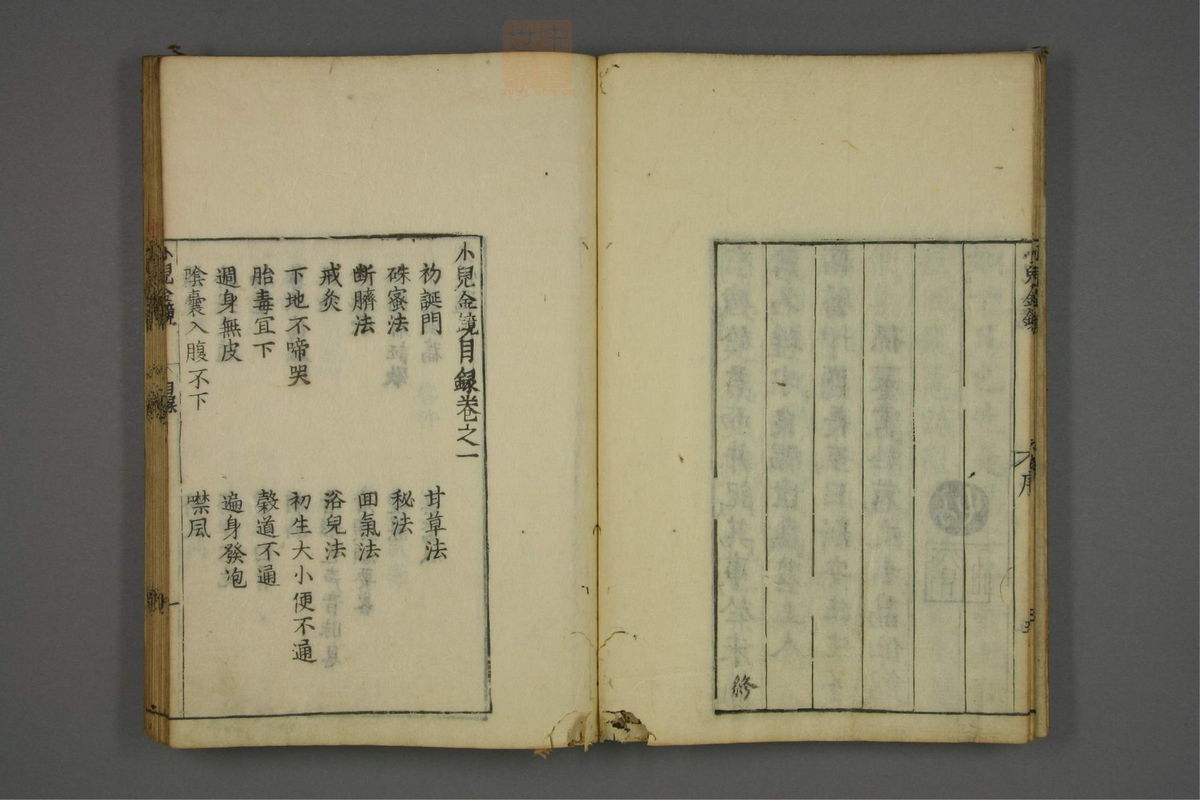 修
小兒金鏡目録卷之一
初誕門
甘草法
硃蜜法
秘法
断臍法
囬氣法
戒灸
浴兒法
下地不啼哭
初生大小便不通
胎毒宜下
穀道不通
週身無皮
遍身發泡
陰囊入腹不下
噤风
小兒金鏡
目録
一